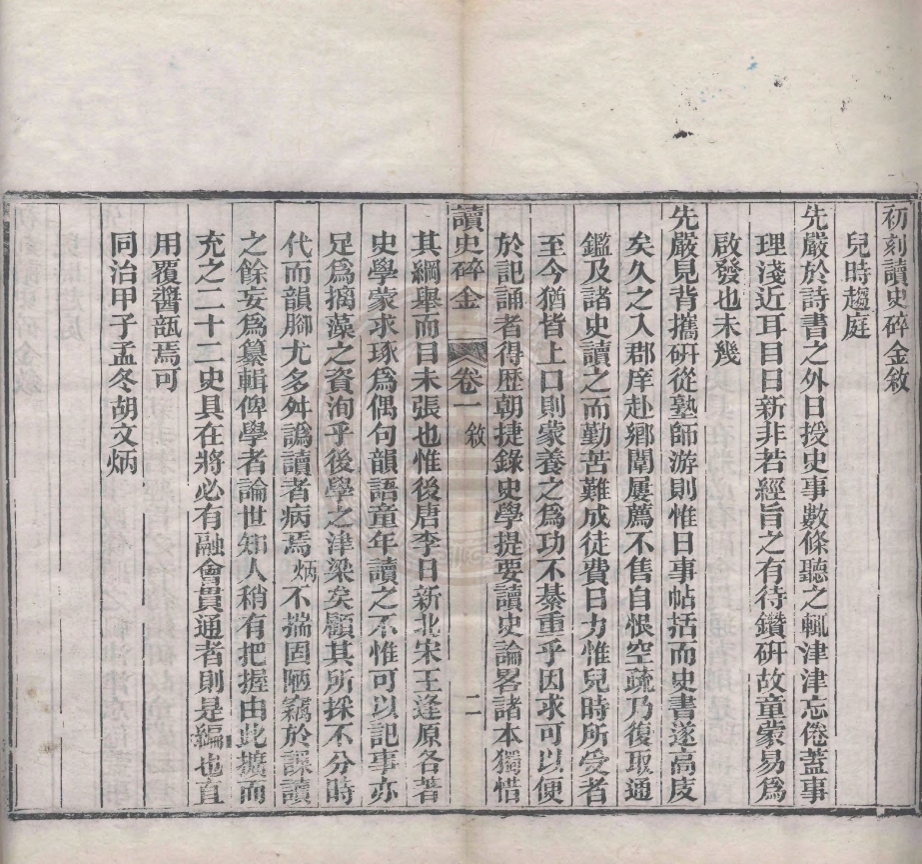 初刻讀史碎金敘
兒時趨庭
先嚴於詩書之外日授史事數條聽之輒津津忘倦蓋事
理淺近耳目日新非若經旨之有待鑽研故童蒙易爲
啟發也未幾
先嚴見背攜硏從塾師游則惟日事帖括而史書遂高庋
矣久之入郡庠赴鄉闈屢薦不售自恨空疏乃復取通
鑑及諸史讀之而勤苦難成徒費日力惟兒時所受者
至今猶皆上口則蒙養之爲功不綦重乎因求可以便
於記誦者得歷朝捷錄史學提要讀史論畧諸本獨惜
讀史碎金 卷一 敘 二
其綱舉而目未張也惟後唐李日新北宋王逢原各著
史學蒙求琢爲偶句韻語童年讀之不惟可以記事亦
足爲摛藻之資洵乎後學之津梁矣顧其所採不分時
代而韻腳尤多舛譌讀者病焉炳不揣固陋竊於課讀
之餘妄爲纂輯俾學者論世知人稍有把握由此擴而
充之二十二史具在將必有融會貫通者則是編也直
用覆醬瓿焉可
同治甲子孟冬胡文炳